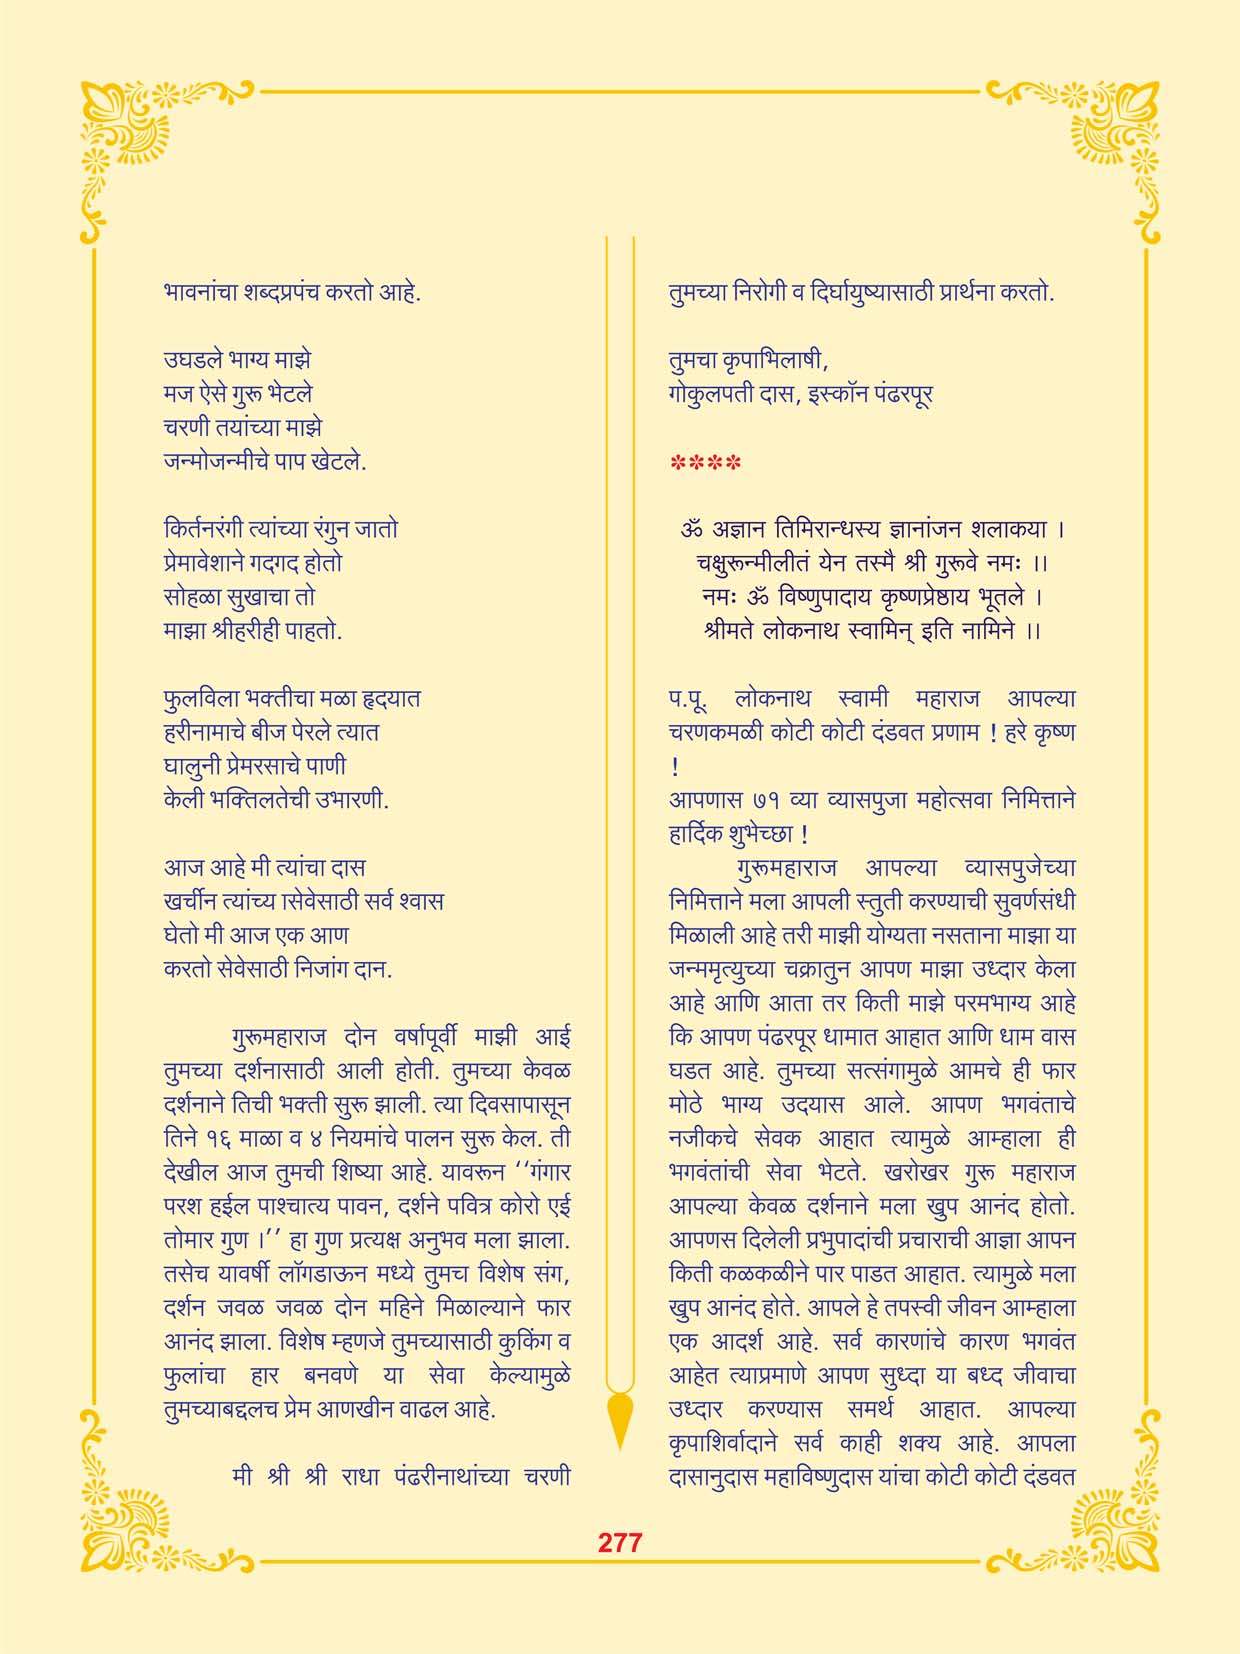 भावनांचा शब्दप्रपंच करतो आहे.
उघडले भाग्य माझे
मज ऐसे गुरू भेटले
चरणी तयांच्या माझे
जन्मोजन्मीचे पाप खेटले.
किर्तनरंगी त्यांच्या रंगुन जातो
प्रेमावेशाने गदगद होतो
सोहळा सुखाचा तो
माझा श्रीहरीही पाहतो.
फुलविला भक्तीचा मळा हृदयात
हरीनामाचे बीज पेरले त्यात
घालुनी प्रेमरसाचे पाणी
केली भक्तिलतेची उभारणी.
आज आहे मी त्यांचा दास
खर्चीन त्यांच्य ासेवेसाठी सर्व श्वास
घेतो मी आज एक आण
करतो सेवेसाठी निजांग दान.
गुरूमहाराज दोन वर्षापूर्वी माझी आई
तुमच्या दर्शनासाठी आली होती. तुमच्या केवळ
दर्शनाने तिची भक्ती सुरू झाली. त्या दिवसापासून
तिने १६ माळा व ४ नियमांचे पालन सुरू केल. ती
देखील आज तुमची शिष्या आहे. यावरून ‘‘गंगार
परश हईल पाश्चात्य पावन, दर्शने पवित्र कोरो एई
तोमार गुण ।’’ हा गुण प्रत्यक्ष अनुभव मला झाला.
तसेच यावर्षी लॉगडाऊन मध्ये तुमच विशेष संग,
दर्शन जवळ जवळ दोन महिने मिळाल्याने फार
आनंद झाला. विशेष म्हणजे तुमच्यासाठी कुकिंग व
फुलांचा हार बनवणे या सेवा केल्यामुळे
तुमच्याबद्दलच प्रेम आणखीन वाढल आहे.
मी श्री श्री राधा पंढरीनाथांच्या चरणी
तुमच्या निरोगी व दिर्घायुष्यासाठी प्रार्थना करतो.
तुमचा कृपाभिलाषी,
गोकुलपती दास, इस्कॉन पंढरपूर
****
ॐ अज्ञान तिमिरान्धस्य ज्ञानांजन शलाकया ।
चक्षुरून्मीलीतं येन तस्मै श्री गुरूवे नमः ।।
नमः ॐ विष्णुपादाय कृष्णप्रेष्ठाय भूतले ।
श्रीमते लोकनाथ स्वामिन् इति नामिने ।।
प.पू. लोकनाथ स्वामी महाराज आपल्या
चरणकमळी कोटी कोटी दंडवत प्रणाम ! हरे कृष्ण
!
आपणास ७१ व्या व्यासपुजा महोत्सवा निमित्ताने
हार्दिक शुभेच्छा !
गुरूमहाराज आपल्या व्यासपुजेच्या
निमित्ताने मला आपली स्तुती करण्याची सुवर्णसंधी
मिळाली आहे तरी माझी योग्यता नसताना माझा या
जन्ममृत्युच्या चक्रातुन आपण माझा उध्दार केला
आहे आणि आता तर किती माझे परमभाग्य आहे
कि आपण पंढरपूर धामात आहात आणि धाम वास
घडत आहे. तुमच्या सत्संगामुळे आमचे ही फार
मोठे भाग्य उदयास आले. आपण भगवंताचे
नजीकचे सेवक आहात त्यामुळे आम्हाला ही
भगवंतांची सेवा भेटते. खरोखर गुरू महाराज
आपल्या केवळ दर्शनाने मला खुप आनंद होतो.
आपणस दिलेली प्रभुपादांची प्रचाराची आज्ञा आपन
किती कळकळीने पार पाडत आहात. त्यामुळे मला
खुप आनंद होते. आपले हे तपस्वी जीवन आम्हाला
एक आदर्श आहे. सर्व कारणांचे कारण भगवंत
आहेत त्याप्रमाणे आपण सुध्दा या बध्द जीवाचा
उध्दार करण्यास समर्थ आहात. आपल्या
कृपाशिर्वादाने सर्व काही शक्य आहे. आपला
दासानुदास महाविष्णुदास यांचा कोटी कोटी दंडवत
277